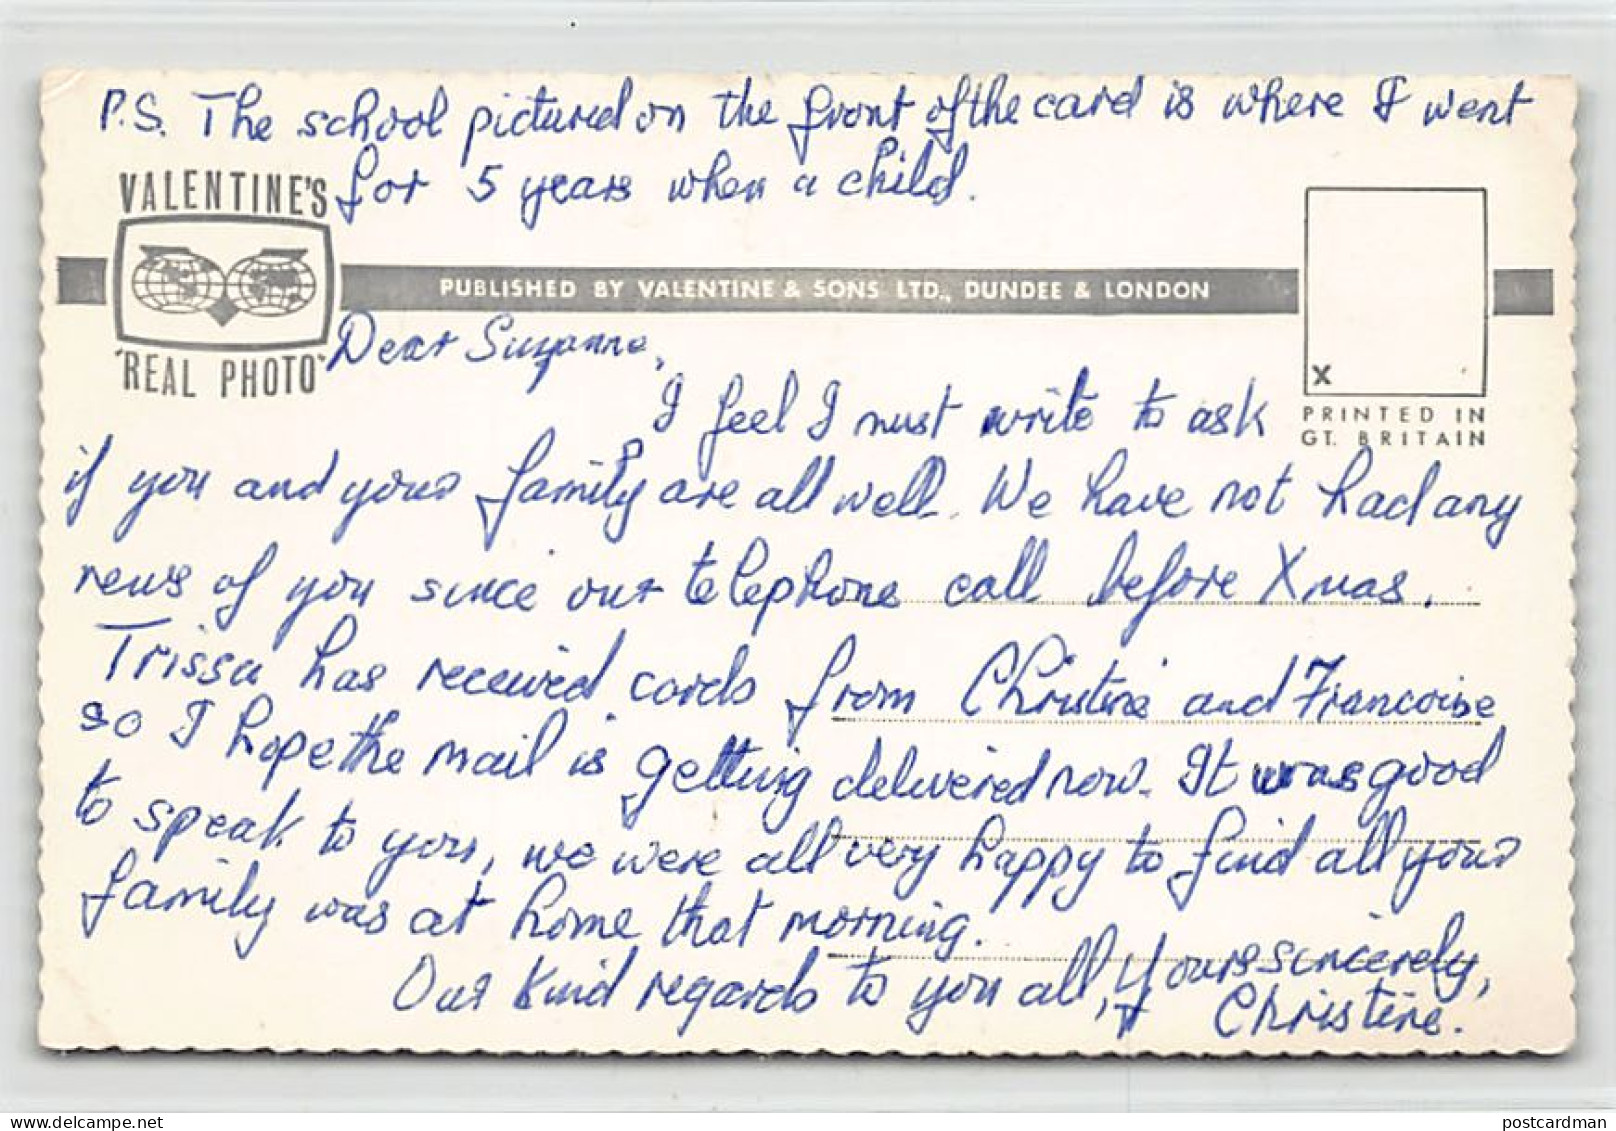 P.S. The school pictured on the front of the card is where I went
for 5 years when a child.
VALENTINE'S
"REAL PHOTO"
PUBLISHED BY VALENTINE & SONS LTD., DUNDEE & LONDON
X
PRINTED IN
GT. BRITAIN
Dear Suzanne,
I feel I must write to ask
if you and your family are all well. We have not had any
news of you since our telephone call before Xmas.
Trissa has received cards from Christine and Francoise
so I hope the mail is getting delivered now. It was good
to speak to you, we were all very happy to find all your
family was at home that morning.
Our kind regards to you all, Yours sincerely,
Christine.
postcardman